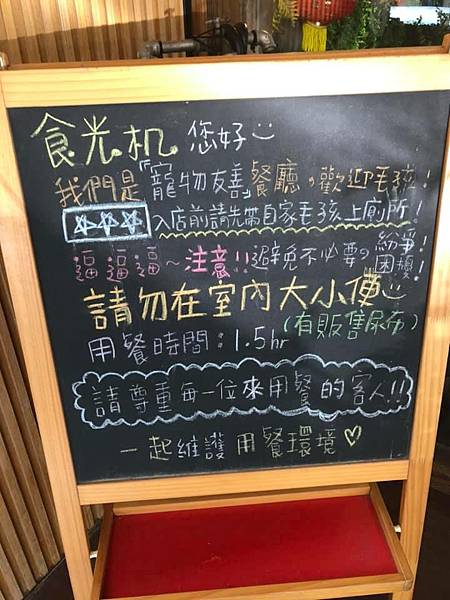 食光机 您好
我們是「寵物友善」餐廳，歡迎毛孩！
☆☆☆ 入店前請先帶自家毛孩上廁所！
逼逼逼~注意!!避免不必要的紛爭困擾！
請勿在室內大小便
(有販售尿布)
用餐時間：1.5hr
請尊重每一位來用餐的客人!!
一起維護用餐環境♡